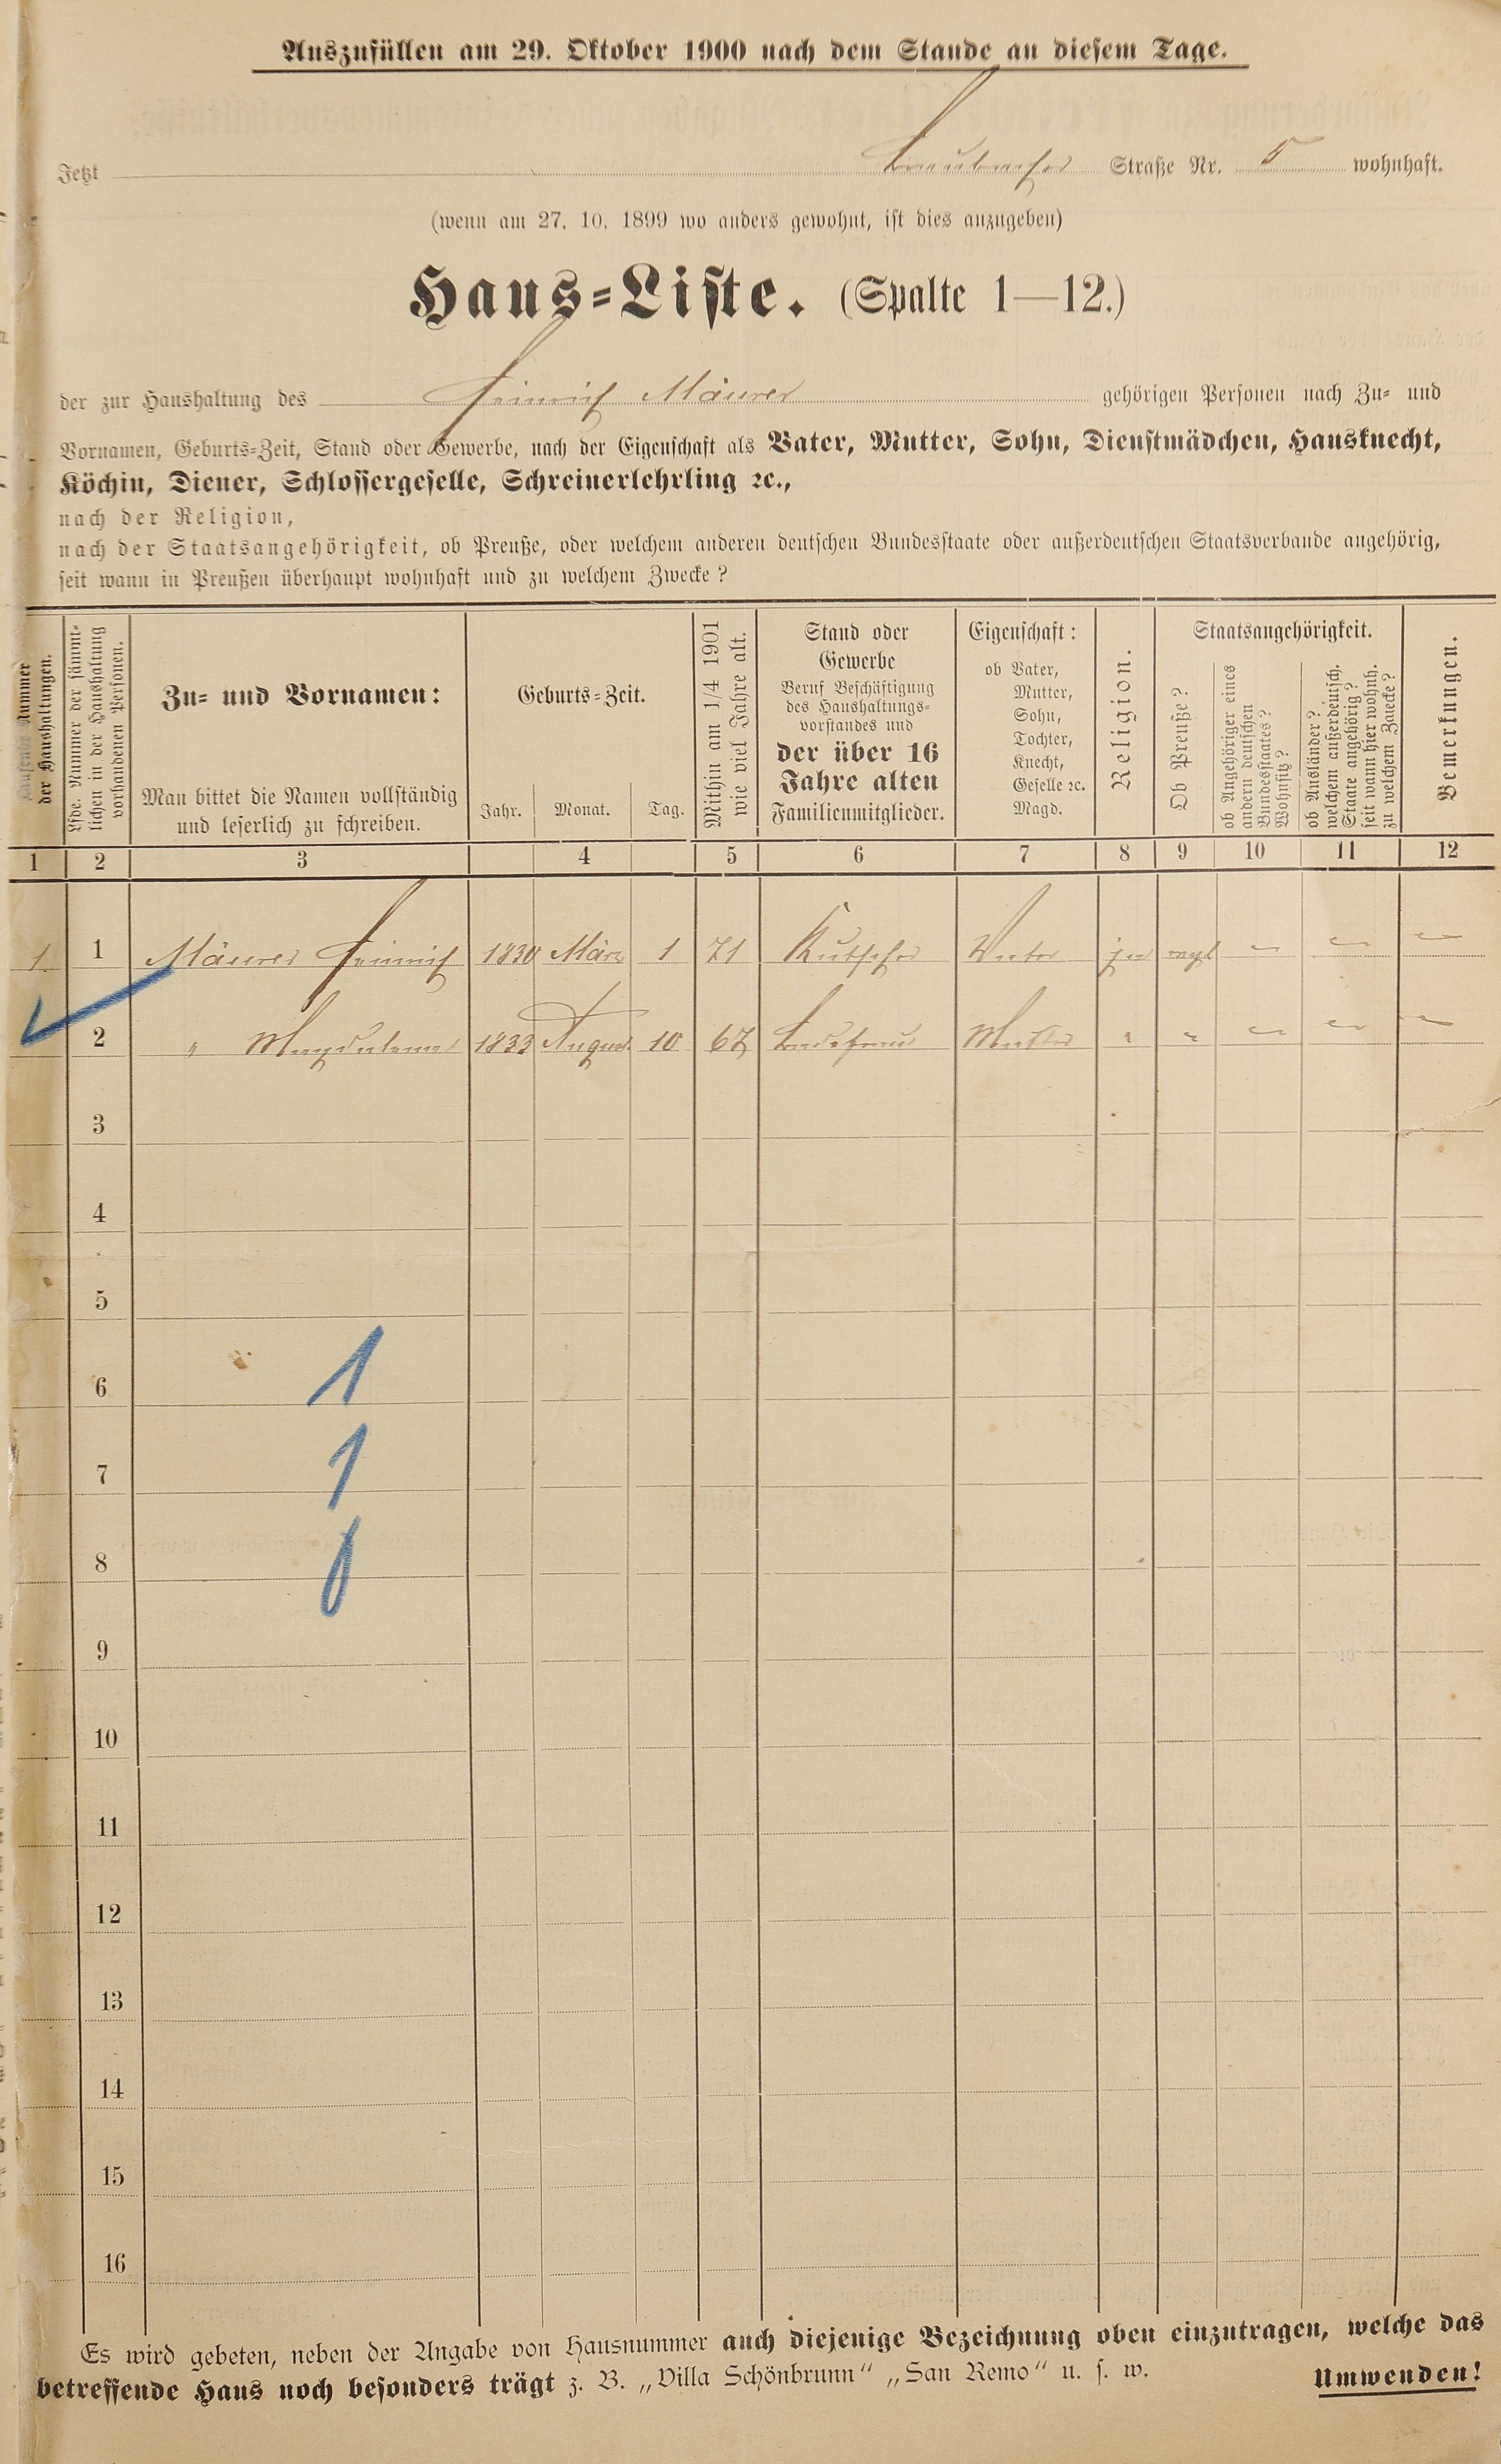 Auszufüllen am 29. Oktober 1900 nach dem Stande an diesem Tage.
Jetzt Straße Nr. 5 wohnhaft.
(wenn am 27. 10. 1899 wo anders gewohnt, ist dies anzugeben)
Haus-Liste. (Spalte 1—12.)
der zur Haushaltung des Heinrich Mäurer gehörigen Personen nach Zu- und
Vornamen, Geburts-Zeit, Stand oder Gewerbe, nach der Eigenschaft als Vater, Mutter, Sohn, Dienstmädchen, Hausknecht,
Köchin, Diener, Schlossergeselle, Schreinerlehrling ꝛc.,
nach der Religion,
nach der Staatsangehörigkeit, ob Preuße, oder welchem anderen deutschen Bundesstaate oder außerdeutschen Staatsverbande angehörig,
seit wann in Preußen überhaupt wohnhaft und zu welchem Zwecke?
Laufende Nummer
der Haushaltungen.
Lfde. Nummer der sämmt-
lichen in der Haushaltung
vorhandenen Personen.
Zu- und Vornamen:
Man bittet die Namen vollständig
und leserlich zu schreiben.
Geburts-Zeit.
Jahr. Monat. Tag.
Mithin am 1/4 1901
wie viel Jahre alt.
Stand oder
Gewerbe
Beruf Beschäftigung
des Haushaltungs-
vorstandes und
der über 16
Jahre alten
Familienmitglieder.
Eigenschaft:
ob Vater,
Mutter,
Sohn,
Tochter,
Knecht,
Geselle ꝛc.
Magd.
Religion.
Staatsangehörigkeit.
Ob Preuße?
ob Angehöriger eines
andern deutschen
Bundesstaates?
Wohnsitz?
ob Ausländer?
welchem außerdeutsch.
Staate angehörig?
seit wann hier wohnh.
zu welchem Zwecke?
Bemerkungen.
1 2 3 4 5 6 7 8 9 10 11 12
1. 1 Mäurer Heinrich 1830 März 1 71 Kutscher Vater – – –
2 " Magdalena 1833 August 10 67 Mutter " " – – –
3
4
5
6 1
7 1
8 0
9
10
11
12
13
14
15
16
Es wird gebeten, neben der Angabe von Hausnummer auch diejenige Bezeichnung oben einzutragen, welche das
betreffende Haus noch besonders trägt z. B. „Villa Schönbrunn“ „San Remo“ u. s. w. Umwenden!